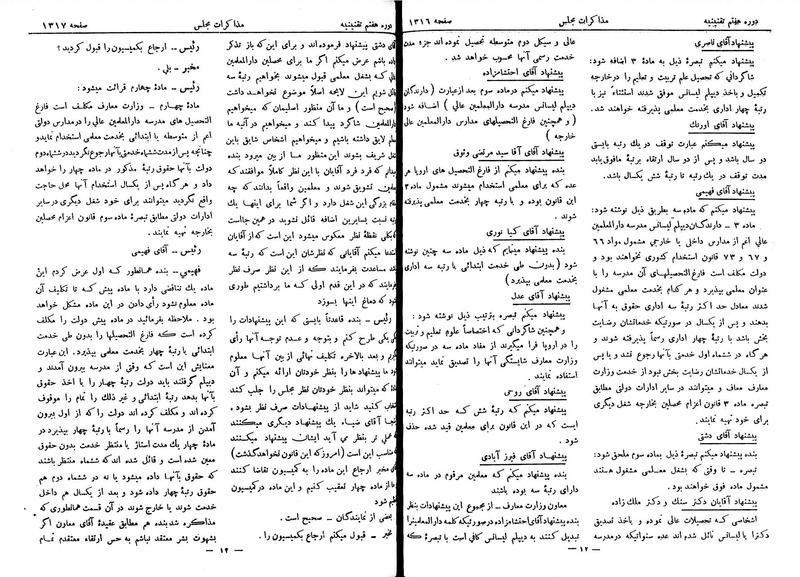 دوره هفتم تقنینیه
مذاکرات مجلس
صفحه ۱۳۱۶
پیشنهاد آقای ناصری
پیشنهاد میکنم تبصرهٔ ذیل به مادهٔ ۳ اضافه شود:
شاگردانی که تحصیل علم تربیت و تعلیم را درخارجه
تکمیل و باخذ دیپلم لیسانس موفق شدند استثناءً نیز با
رتبهٔ چهار اداری بخدمت معلمی پذیرفته خواهند شد.
پیشنهاد آقای اورنگ
پیشنهاد میکنم عبارت توقف در یك رتبه بایستی
دو سال باشد و پس از دو سال ارتقاء برتبهٔ مافوق باید
مدت توقف در یك رتبه تا رتبهٔ شش یکسال باشد.
پیشنهاد آقای فهیمی
پیشنهاد میکنم که ماده سه بطریق ذیل نوشته شود:
ماده ۳ ـ دارندگان دیپلم لیسانس مدرسه دارالمعلمین
عالی اعم از مدارس داخل یا خارجی مشمول مواد ۶۶
و ۶۷ و ۷۳ قانون استخدام کشوری نخواهند بود و
دولت مکلف است فارغ التحصیلهای آن مدرسه را با
عنوان معلمی بپذیرد و هر کدام بخدمت معلمی مشغول
شدند معادل حد اکثر رتبهٔ سه اداری حقوق به آنها
بدهند و پس از یکسال در صورتیکه خدماتشان رضایت
بخش باشد با رتبهٔ چهار اداری رسماً پذیرفته شوند و
هر گاه در ششماه اول خدمتی بآنها رجوع نشد و یا پس
از یکسال خدماتشان رضایت بخش نبود از خدمت وزارت
معارف معاف و میتوانند در سایر ادارات دولتی مطابق
تبصره ماده ۳ قانون اعزام محصلین بخارجه شغل دیگری
برای خود تهیه نمایند.
پیشنهاد آقای دشتی
بنده پیشنهاد میکنم تبصرهٔ ذیل بماده سوم ملحق شود:
تبصره ـ تا وقتی که بشغل معلمی مشغول هستند
مشمول ماده فوق خواهند بود.
پیشنهاد آقایان دکتر سنك و دکتر ملك زاده
اشخاصی که تحصیلات عالی نموده و باخذ تصدیق
دکترا یا لیسانس نائل شده اند عده سنواتیکه در مدرسه
عالی و سیکل دوم متوسطه تحصیل نموده اند جزء مدت
خدمت رسمی آنها محسوب خواهد شد.
پیشنهاد آقای احتشام‌زاده
پیشنهاد میکنم درماده سوم بعد ازعبارت (دارندگان
دیپلم لیسانس مدرسه دارالمعلمین عالی) اضافه شود
(و همچنین فارغ التحصیلهای مدارس دارالمعلمین عالی
خارجه)
پیشنهاد آقای آقا سید مرتضی وثوق
بنده پیشنهاد میکنم از فارغ التحصیل های اروپا هر
عده که برای معلمی استخدام میشوند مشمول ماده ۳
این قانون بوده و با رتبه چهار بخدمت معلمی پذیرفته
شوند.
پیشنهاد آقای کیا نوری
بنده پیشنهاد مینمایم که ذیل ماده سه چنین نوشته
شود (بدون طی خدمت ابتدائی با رتبه سه اداری
بخدمت معلمی بپذیرد)
پیشنهاد آقای عدل
پیشنهاد میکنم تبصره بترتیب ذیل نوشته شود:
و همچنین شاگردانی که اختصاصاً علوم تعلیم و تربیت
را در اروپا فرا میگیرند از مفاد ماده سه در صورتیکه
وزارت معارف شایستگی آنها را تصدیق نماید میتوانند
استفاده نمایند.
پیشنهاد آقای روحی
پیشنهاد میکنم که رتبهٔ شش که حد اکثر رتبه
است که در این قانون برای معلمین قید شده حذف
شود.
پیشنهاد آقای فیرز آبادی
بنده پیشنهاد میکنم که معلمین مرقوم در ماده سه
دارای رتبهٔ سه بوده باشند
معاون وزارت معارف ـ از مجموع این پیشنهادات بنظر
بنده پیشنهاد آقای احتشام‌زاده درصورتیکه کلمه دارالمعلمین را
تبدیل کنند به دیپلم لیسانس کافی است با تبصرهٔ که
ـ ۱۲ ـ
دوره هفتم تقنینیه
مذاکرات مجلس
صفحه ۱۳۱۷
آقای دشتی پیشنهاد فرموده‌اند و برای این که باز تذکر
داده باشم عرض میکنم اگر ما برای محصلین دارالمعلمین
که بشغل معلمی قبول میشوند بخواهیم رتبه سه
قائل شویم این لایحه اصلاً موضوع نخواهد داشت
(صحیح است) و ما آن منظور اصلیمان که میخواهیم
دارالمعلمین شاگرد پیدا کنند و میخواهیم در آتیه ما
معلم لایق داشته باشیم و میخواهیم اشخاص شایق باین
شغل شریف بشوند این منظور ما از بین میرود بنده
میدانم که فرد فرد آقایان با این نظر کاملاً موافقند که
معلمین تشویق شوند و معلمین واقعاً بدانند که چه
مقام بزرگی این شغل دارد و اگر شما برای اینها یك
رتبه نسبت بسایرین اضافه قائل نشوید در همین جااست
بکلی نقطهٔ نظر معکوس میشود این است که از آقایان
استدعا میکنم آقایانی که نظرشان این است که رتبهٔ سه
مساعدت بفرمایند که از این نظر صرف نظر
فرمایند که در این قدم اولی که ما برداشتیم طوری
نشود که دماغ اینها بسوزد
رئیس ـ بنده قاعدتاً بایستی که این پیشنهادات را
یکی یکی طرح کنم و بتوجه و عدم توجه آنها رأی
بگیرم و بعد بالاخره تکلیف نهائی از بین آنها معلوم
شود پیشنهاد ها را بنظر خودتان ارائه میکنم و آن
که میتواند بنظر خودتان نظر مجلس را جلب کند
انتخاب کنید شاید از پیشنهادات صرف نظر بشود،
آقای ضیاء یك پیشنهاد دیگری میکنند
عملی تر بنظر می آید ایشان پیشنهاد میکنند
مناسب این است (امروز که این قانون نخواهد گذشت)
مخبر ارجاع این ماده را به کمیسیون تقاضا کنند
ما از ماده چهار تعقیب کنیم و این ماده در کمیسیون
تنظیم شود
بعضی از نمایندگان ـ صحیح است.
مخبر ـ قبول میکنم ارجاع بکمیسیون را.
رئیس ـ ارجاع بکمیسیون را قبول کردید؟
مخبر ـ بلی.
رئیس ـ ماده چهارم قرائت میشود:
مادهٔ چهارم ـ وزارت معارف مکلف است فارغ
التحصیل های مدرسه دارالمعلمین عالی را درمدارس دولتی
اعم از متوسطه یا ابتدائی بخدمت معلمی استخدام نماید و
چنانچه پس از مدت ششماه خدمتی بآنها رجوع نگردید در ششماه دوم
دولت بآنها حقوق رتبهٔ مذکور در ماده چهار را خواهد
داد و هر گاه پس از یکسال استخدام آنها محل حاجت
واقع نگردید میتوانند برای خود شغل دیگری در سایر
ادارات دولتی مطابق تبصرهٔ ماده سوم قانون اعزام محصلین
بخارجه تهیه نمایند.
رئیس ـ آقای فهیمی
فهیمی ـ بنده همانطور که اول عرض کردم این
ماده یك تناقضی دارد با ماده پیش که تا تکلیف آن
ماده معلوم نشود رأی دادن در این ماده مشکل خواهد
بود. ملاحظه بفرمائید در ماده پیش دولت را مکلف
کرده است که فارغ التحصیلها را بدون طی خدمت
ابتدائی با رتبهٔ چهار بخدمت معلمی بپذیرد. این عبارت
معنایش این است که وقتی از مدرسه بیرون آمدند و
دیپلم گرفتند باید دولت رتبهٔ چهار را با اخذ حقوق
بآنها بدهد رتبهٔ ابتدائی و غیر ذلك را تمام را موقوف
کرده اند و مکلف کرده اند دولت را که از اول بیرون
آمدن از مدرسه آنها را رسماً با رتبهٔ چهار بپذیرد در
مادهٔ چهار یك مدت استاژ یا منتظر خدمت بدون حقوق
معین شده است و قائل شده اند که ششماه منتظر باشند
که حقوق بآنها داده میشود یا نه در ششماه دوم هم
حقوق رتبهٔ چهار داده شود و بعد از یکسال هم داخل
خدمت شوند یا خارج شوند در آن قسمت همانطوری که
مذاکره شد بنده هم مطابق عقیدهٔ آقای معاون اگر
بشهوت بشر معتقد نباشم به حس ارتقاء معتقدم تمام
ـ ۱۳ ـ